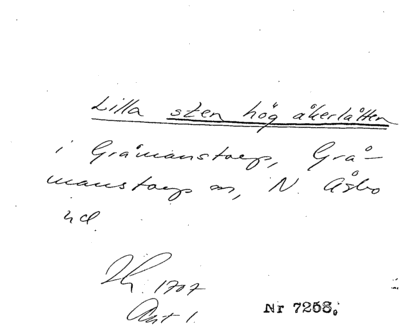 Lilla sten hög åkerlåtten
i Gråmanstorp, Grå-
manstorp sn, N. Åsbo
hd.
Jb. 1707
Akt 1.
Nr 7258.